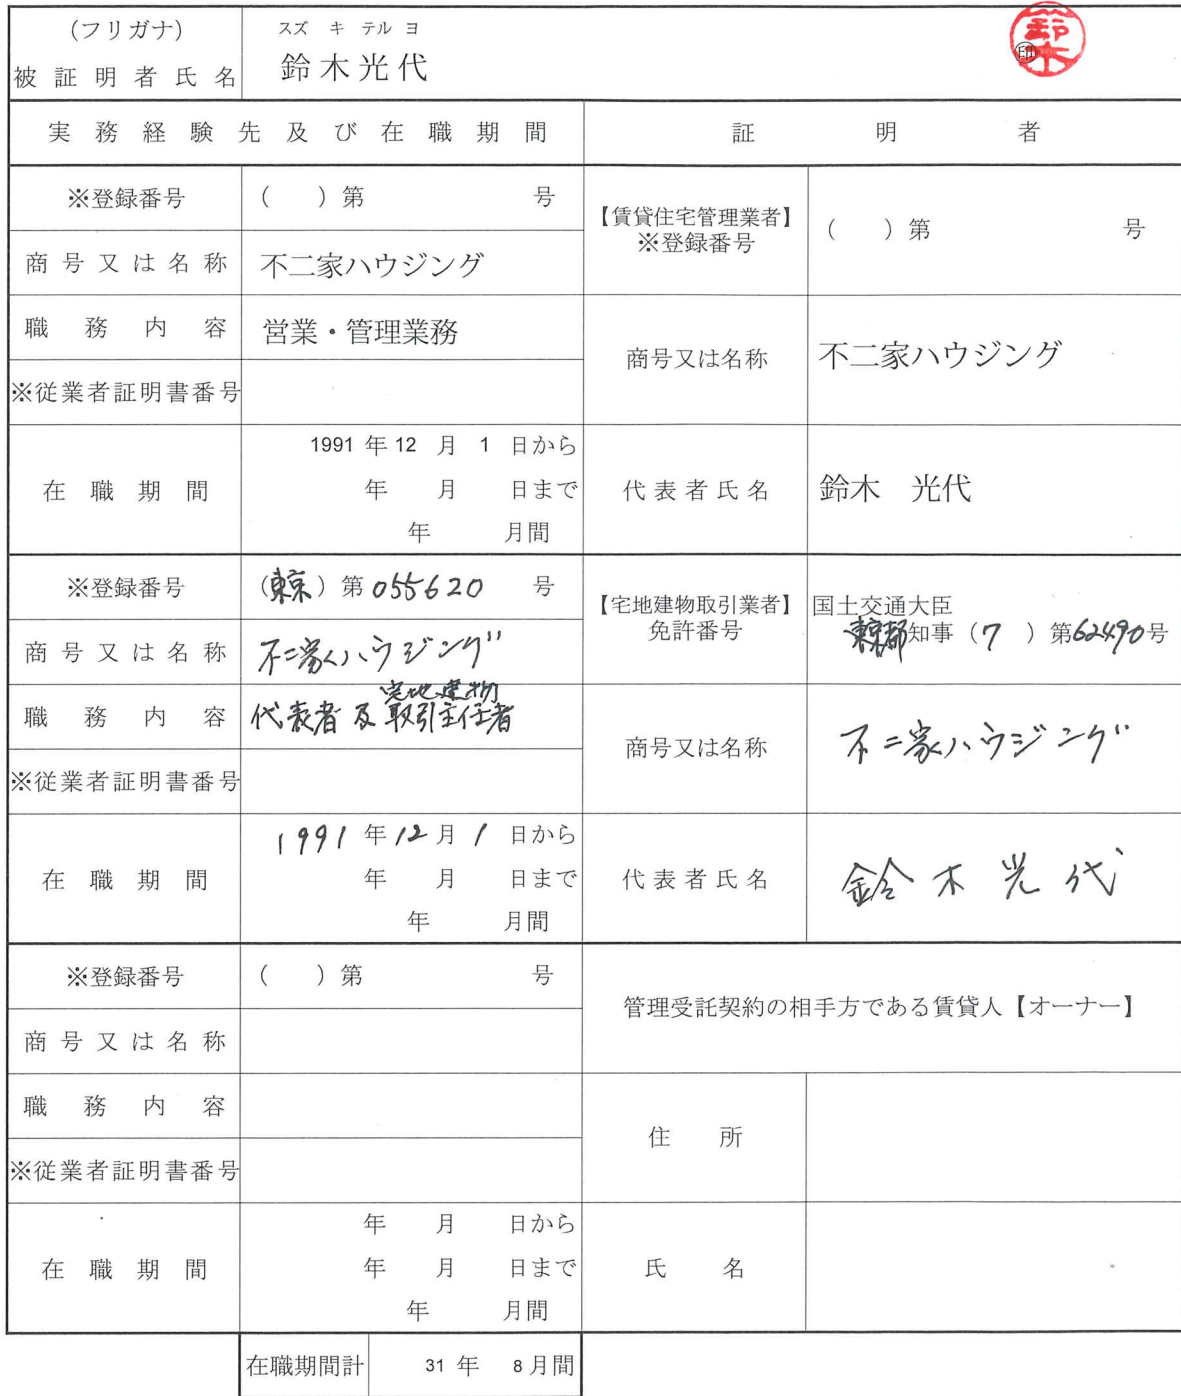 (フリガナ) スズ キ テル ヨ
被証明者氏名 鈴木光代 ㊞ 鈴木
実務経験先及び在職期間 証明者
※登録番号 ( )第 号
【賃貸住宅管理業者】
※登録番号 ( )第 号
商号又は名称 不二家ハウジング
職務内容 営業・管理業務
※従業者証明書番号
商号又は名称 不二家ハウジング
在職期間 1991 年 12 月 1 日から
年 月 日まで
年 月間
代表者氏名 鈴木 光代
※登録番号 (東京)第 055620 号
【宅地建物取引業者】
免許番号
国土交通大臣
東京都知事(7)第62490号
商号又は名称 不二家ハウジング
宅地建物
職務内容 代表者及取引主任者
※従業者証明書番号
商号又は名称 不二家ハウジング
在職期間 1991 年 12 月 1 日から
年 月 日まで
年 月間
代表者氏名 鈴木光代
※登録番号 ( )第 号
商号又は名称
管理受託契約の相手方である賃貸人【オーナー】
職務内容
※従業者証明書番号
住所
在職期間 年 月 日から
年 月 日まで
年 月間
氏名
在職期間計 31 年 8月間